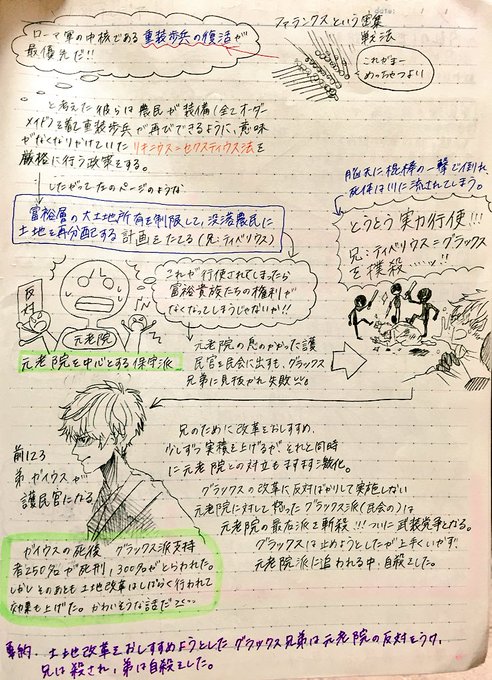 ローマ軍の中核である重装歩兵の復活が
最優先だ!!
ファランクスという密集
戦法
これがまー
めっちゃつよい
と考えた彼らは農民が装備(全てオーダー
メイド)を着て重装歩兵が再びできるように、意味
がなくなりかけていたリキニウス=セクスティウス法を
厳格に行う政策をする。
したがって左のページのような
富裕層の大土地所有を制限して、没落農民に
土地を再分配する計画をたてる(兄:ティベリウス)
脳天に棍棒の一撃で倒れ、
死体は川に流されてしまう。
とうとう実力行使!!!
兄:ティベリウス=グラックス
を撲殺……ッ!!
これが行使されてしまったら
富裕貴族たちの権利が
なくなってしまうじゃないか!!
反対
元老院
元老院を中心とする保守派
元老院の息のかかった護
民官を民会に出すも、グラックス
兄弟に見抜かれ失敗
前123
弟ガイウスが
護民官になる
兄のために改革をおしすすめ、
少しずつ実積を上げるが それと同時
に元老院との対立もますます激化。
グラックスの改革に反対ばかりして実施しない
元老院に対して怒ったグラックス派(民会の)は
元老院の最右派を斬殺!!! ついに武装党争となる。
グラックスは止めようとしたが上手くいかず、
元老院派に追われる中、自殺をした。
ガイウスの死後 グラックス派支持
者250名が死刑、300名がとらわれた。
しかしそのあとも土地改革はしばらく行われて
効果も上げた。かわいそうな話だ
要約 土地改革をおしすすめようとしたグラックス兄弟は元老院の反対をうけ、
兄は殺され、弟は自殺をした。